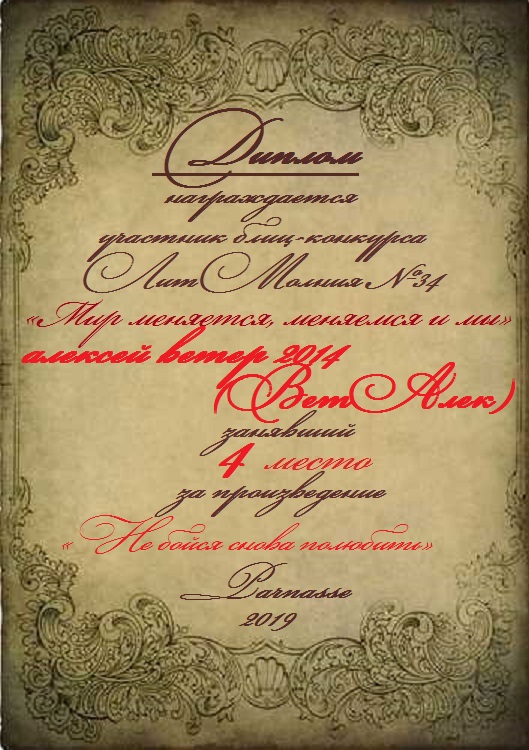 Диплом
награждается
участник блиц-конкурса
ЛитМолния №34
«Мир меняется, меняемся и мы»
алексей ветер 2014
(ВетАлек)
занявший
4 место
за произведение
« Не бойся снова полюбить»
Parnasse
2019